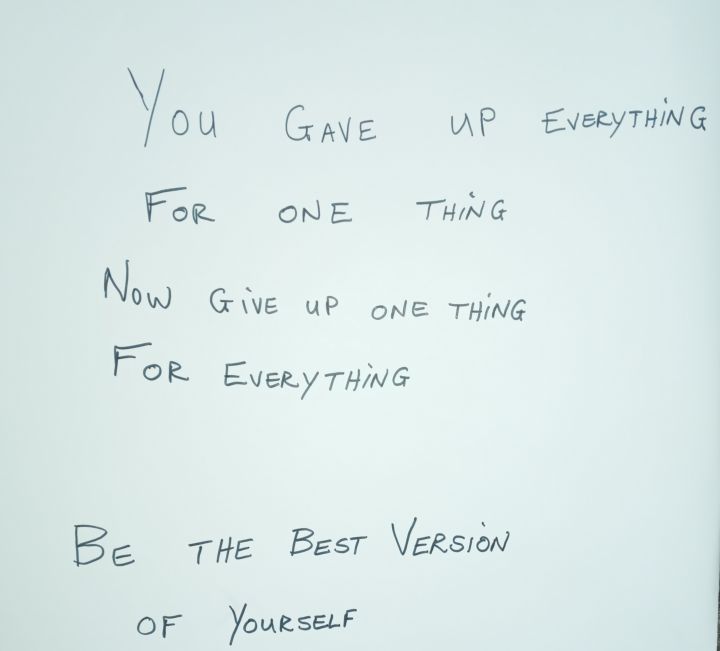 You GAVE UP EVERYTHiNG
FOR ONE THiNG
NOW GiVE UP ONE THiNG
FOR EVERYTHiNG
BE THE BEST VERSiON
OF YOURSELF